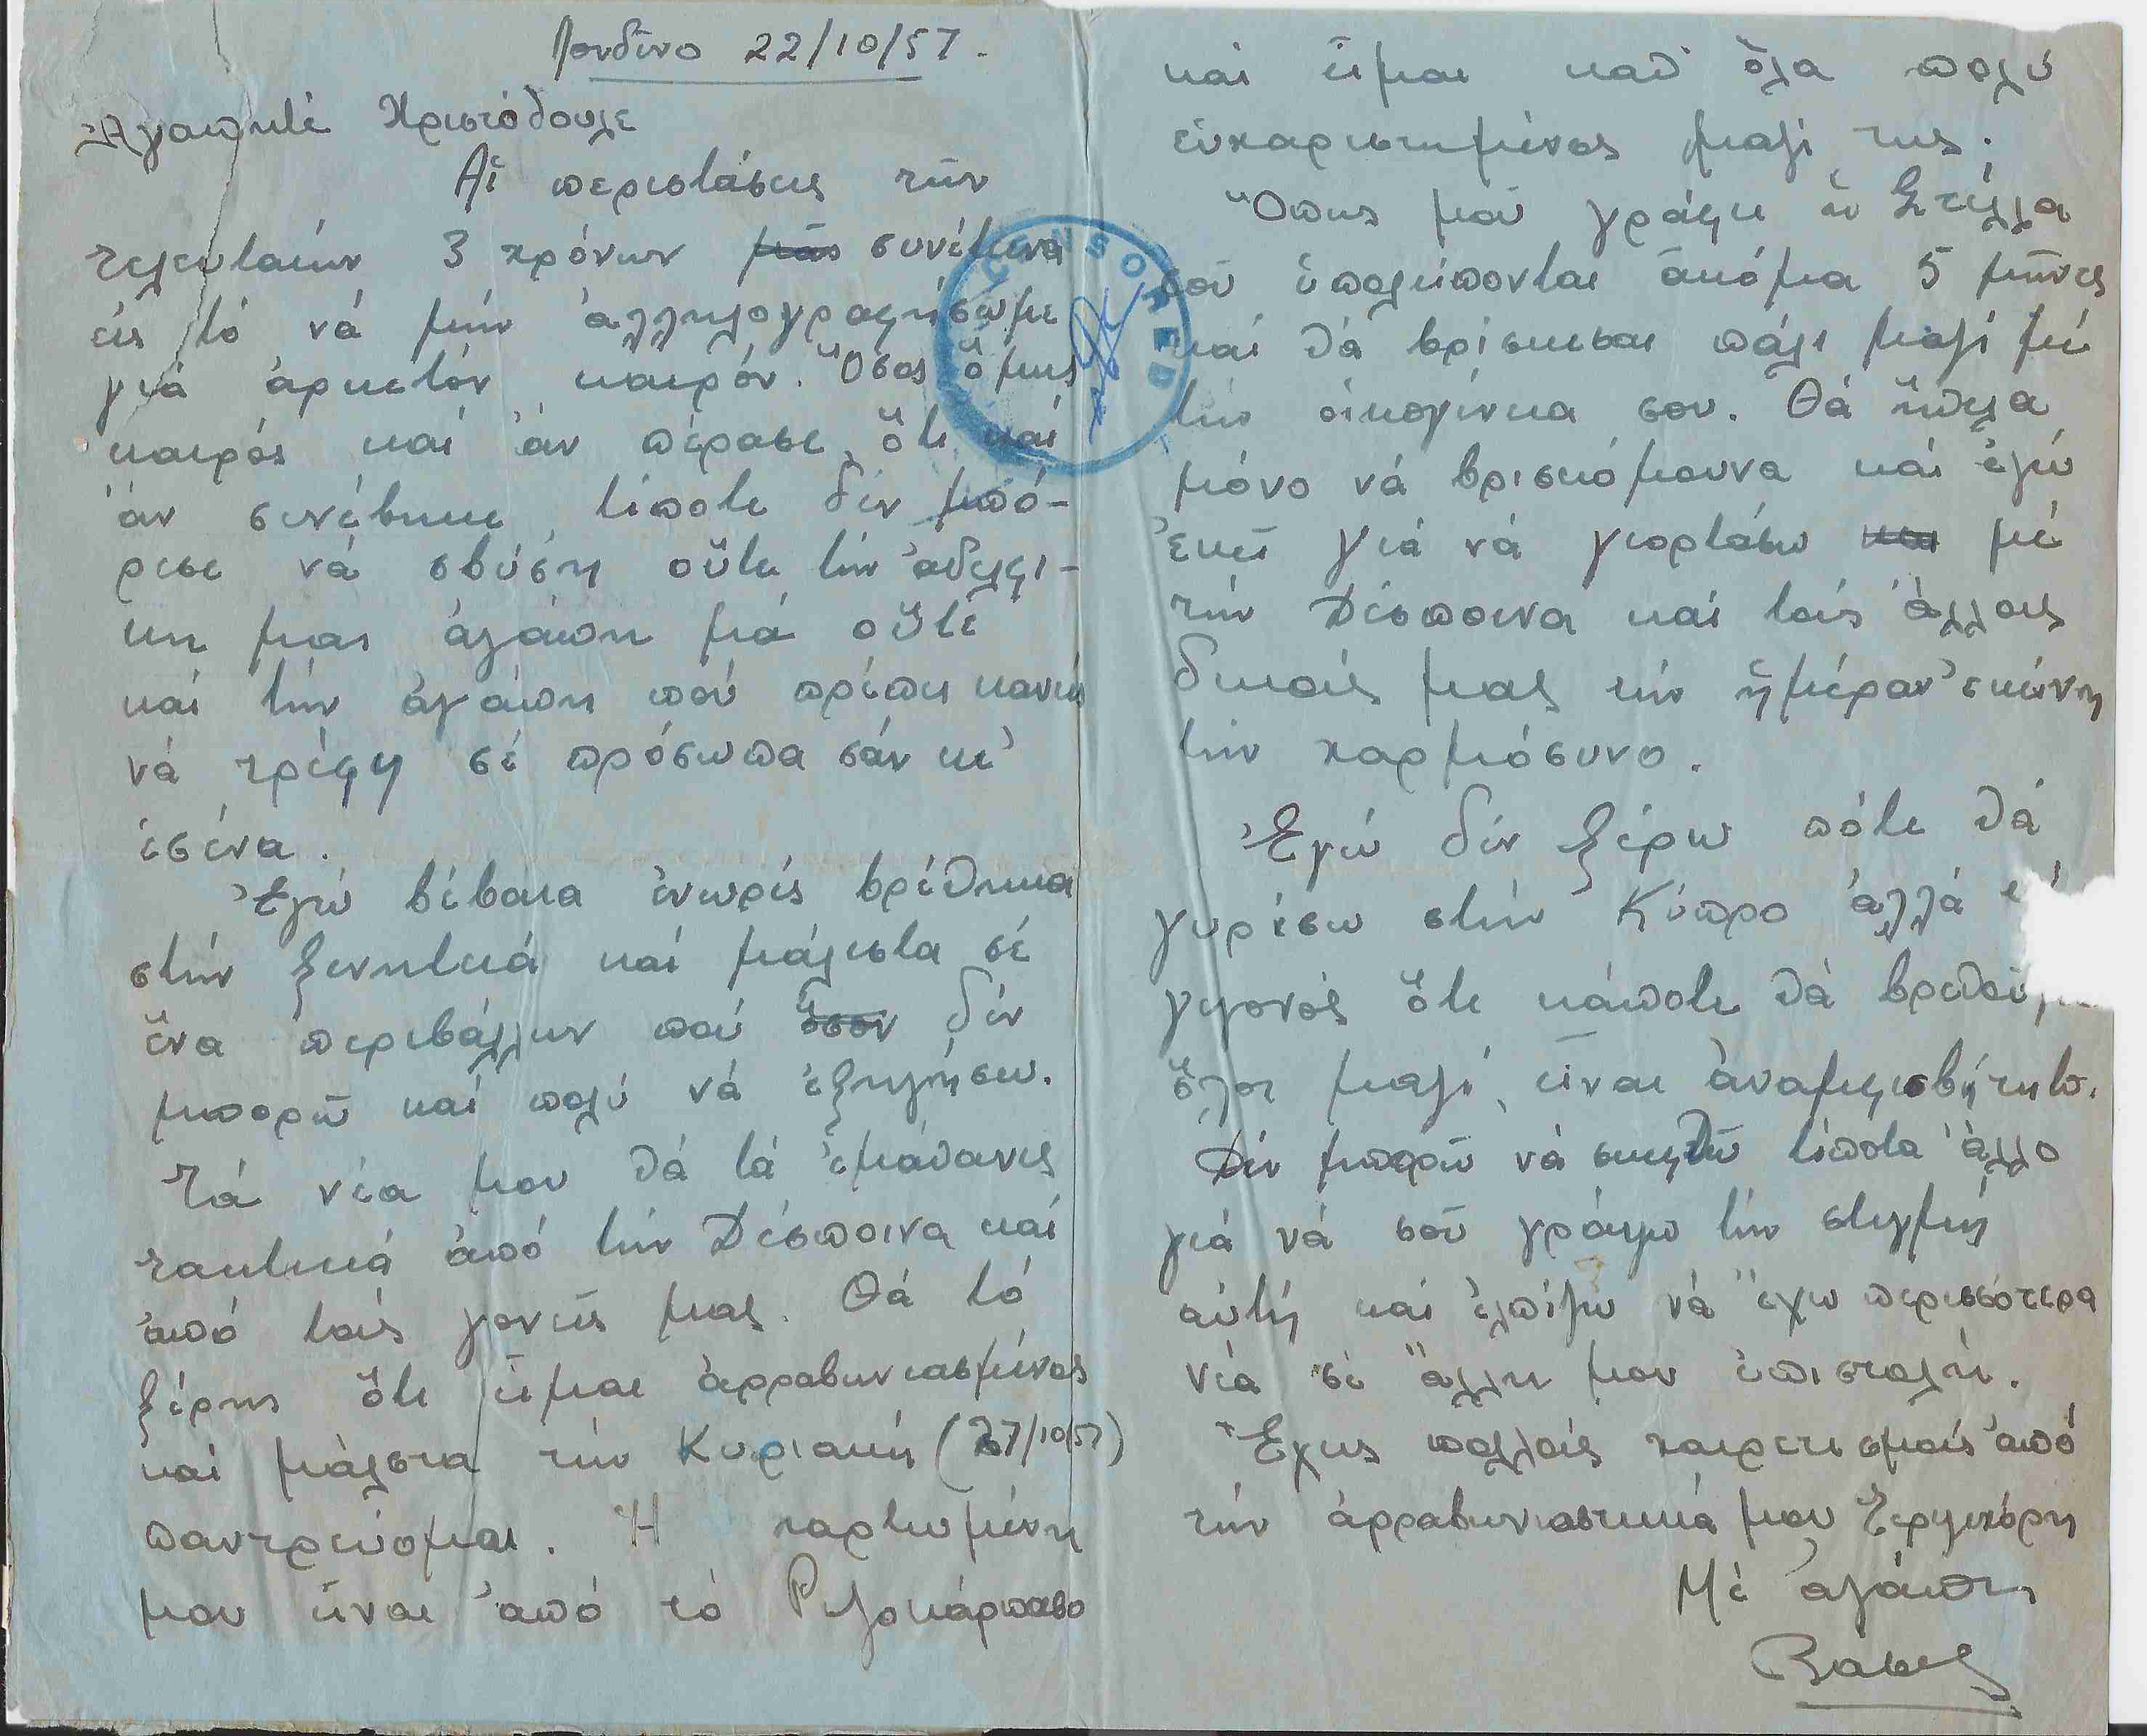 Λονδίνο 22/10/57.
Ἀγαπητέ Χριστόδουλε
Αἱ περιστάσεις τῶν
τελευταίων 3 χρόνων μᾶς συνέτεινα
εἰς τό νά μήν ἀλληλογραφήσωμε
γιά ἀρκετόν καιρόν. Ὅσος ὅμως
καιρός καί ἄν πέρασε, ὅτι καί
ἄν συνέβηκε, τίποτε δέν μπό-
ρεσε νά σβύση οὔτε τήν ἀδελφι-
κη μας ἀγάπη μά οὔτέ
καί τήν ἀγάπη πού πρέπει κανείς
νά τρέφη σέ πρόσωπα σάν κι'
ἐσένα.
Ἐγώ βέβαια ἐνωρίς βρέθηκα
στήν ξενητειά καί μάλιστα σέ
ἕνα περιβάλλων πού ὅσον δέν
μπορῶ καί πολύ νά ἐξηγήσω.
Τά νέα μου θά τά ἐμάθαινες
τακτικά ἀπό τήν Δέσποινα καί
ἀπό τούς γονεῖς μας. Θά τό
ξέρης ὅτι εἶμαι ἀρραβωνιασμένος
καί μάλιστα τήν Κυριακή (27/10/57)
παντρεύομαι. Ἡ χαριτωμένη
μου εἶναι ἀπό τό Ριζοκάρπασο
καί εἶμαι καθ' ὅλα πολύ
εὐχαριστημένος μαζί της.
Ὅπως μοῦ γράφει ἡ Στέλλα
σοῦ ὑπολείπονται ἀκόμα 5 μῆνες
καί θά βρίσκεσαι πάλι μαζί μέ
τήν οἰκογένεια σου. Θά ἤθελα
μόνο νά βρισκόμουνα καί ἐγώ
ἐκεῖ γιά νά γιορτάσω και μέ
τήν Δέσποινα καί τούς ἄλλους
δικούς μας τήν ἡμέραν ἐκείνη
τήν χαρμόσυνο.
Ἐγώ δέν ξέρω πότε θά
γυρίσω στήν Κύπρο ἀλλά
γεγονός ὅτι κάποτε θά βρεθοῦμ
ὅλοι μαζί, εἶναι ἀναμφισβήτητο.
Δέν μπορῶ νά σκεφθῶ τίποτα ἄλλο
γιά νά σοῦ γράψω τήν στιγμή
αὐτή καί ἐλπίζω νά ἔχω περισσότερα
νέα σέ ἄλλη μου ἐπιστολή.
Ἔχεις πολλούς χαιρετισμούς ἀπό
τήν ἀρραβωνιαστικιά μου Τερψιχόρη
Μέ ἀγάπη
CENSORED